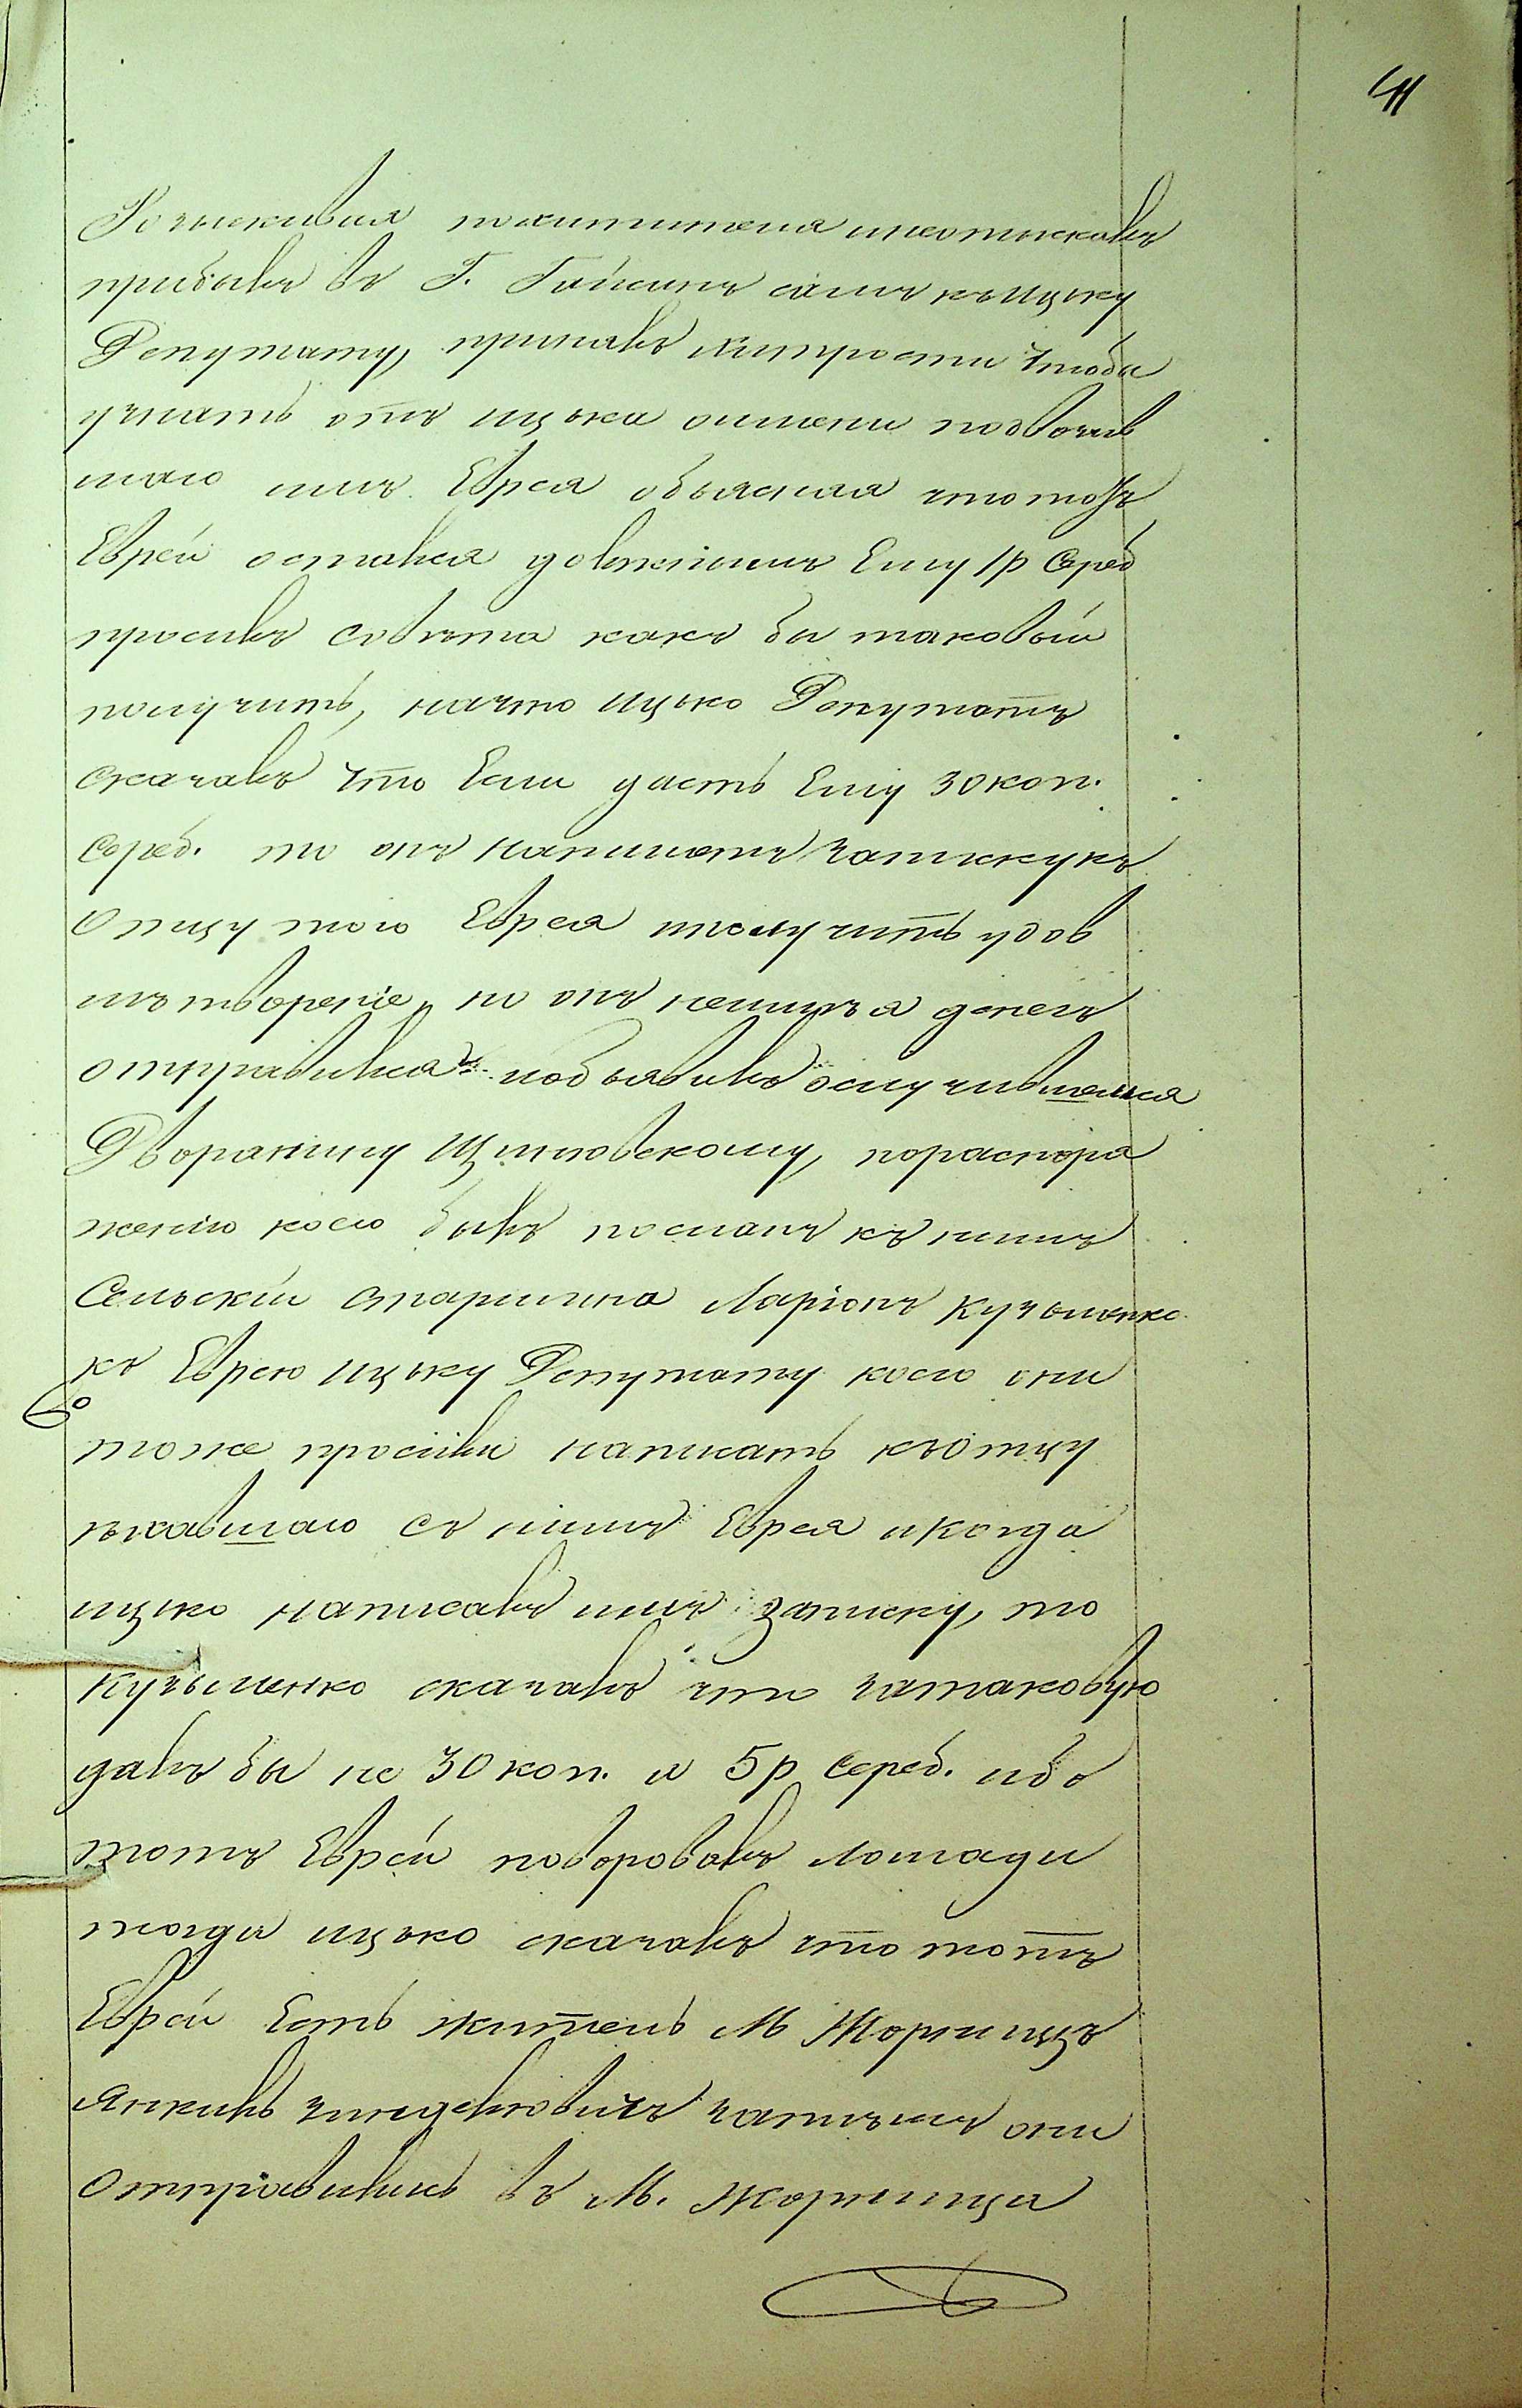 41
Розыскивая похитителя инеотыскавъ
прибылъ въ Г. Гайсинъ самъ къ Ицьку
Депутату, принявъ хитрости чтобы
узнать отъ Ицька оимени подвозив
шаго имъ Еврея объясняя что тотъ
Еврей остался должнымъ Ему 1р Сереб
просилъ совѣта какъ бы таковый
получить, начто Ицько Депутатъ
сказалъ что Если дастъ Ему 30 коп.
сереб. то онъ напишетъ записку къ
Отцу того Еврея иполучитъ удов
лѣтвореніе, но онъ неимѣя денегъ
отправился иобъявилъ ослучившемся
Дворянину Щитовскому, пораспоря
женію коего былъ посланъ къ нимъ
Сельскій старшина Ларіонъ Кузьменко
къ Еврею Ицьку Депутату коего они
тоже просили написать къ Отцу
ѣхавшаго съ нимъ Еврея икогда
Ицько написалъ имъ записку, то
Кузьменко сказалъ что затаковую
далъ бы не 30 коп. а 5р Сереб. ибо
тотъ Еврей поворовалъ лошади
тогда Ицько сказалъ что тотъ
Еврей Есть житель М Жорнищъ
Янкель зачѣмъ они
отправились въ М. Жорнища